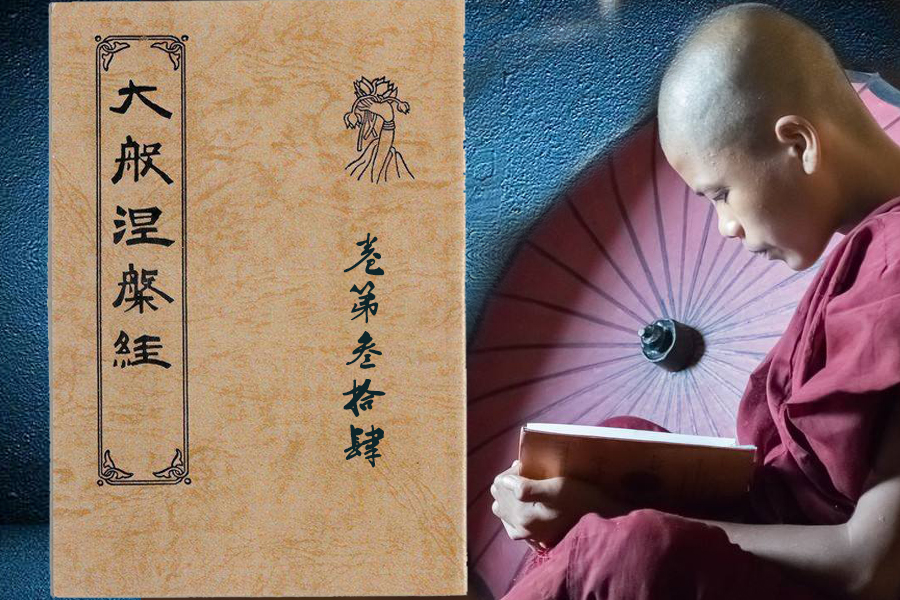 大般涅槃經
卷第叁拾肆